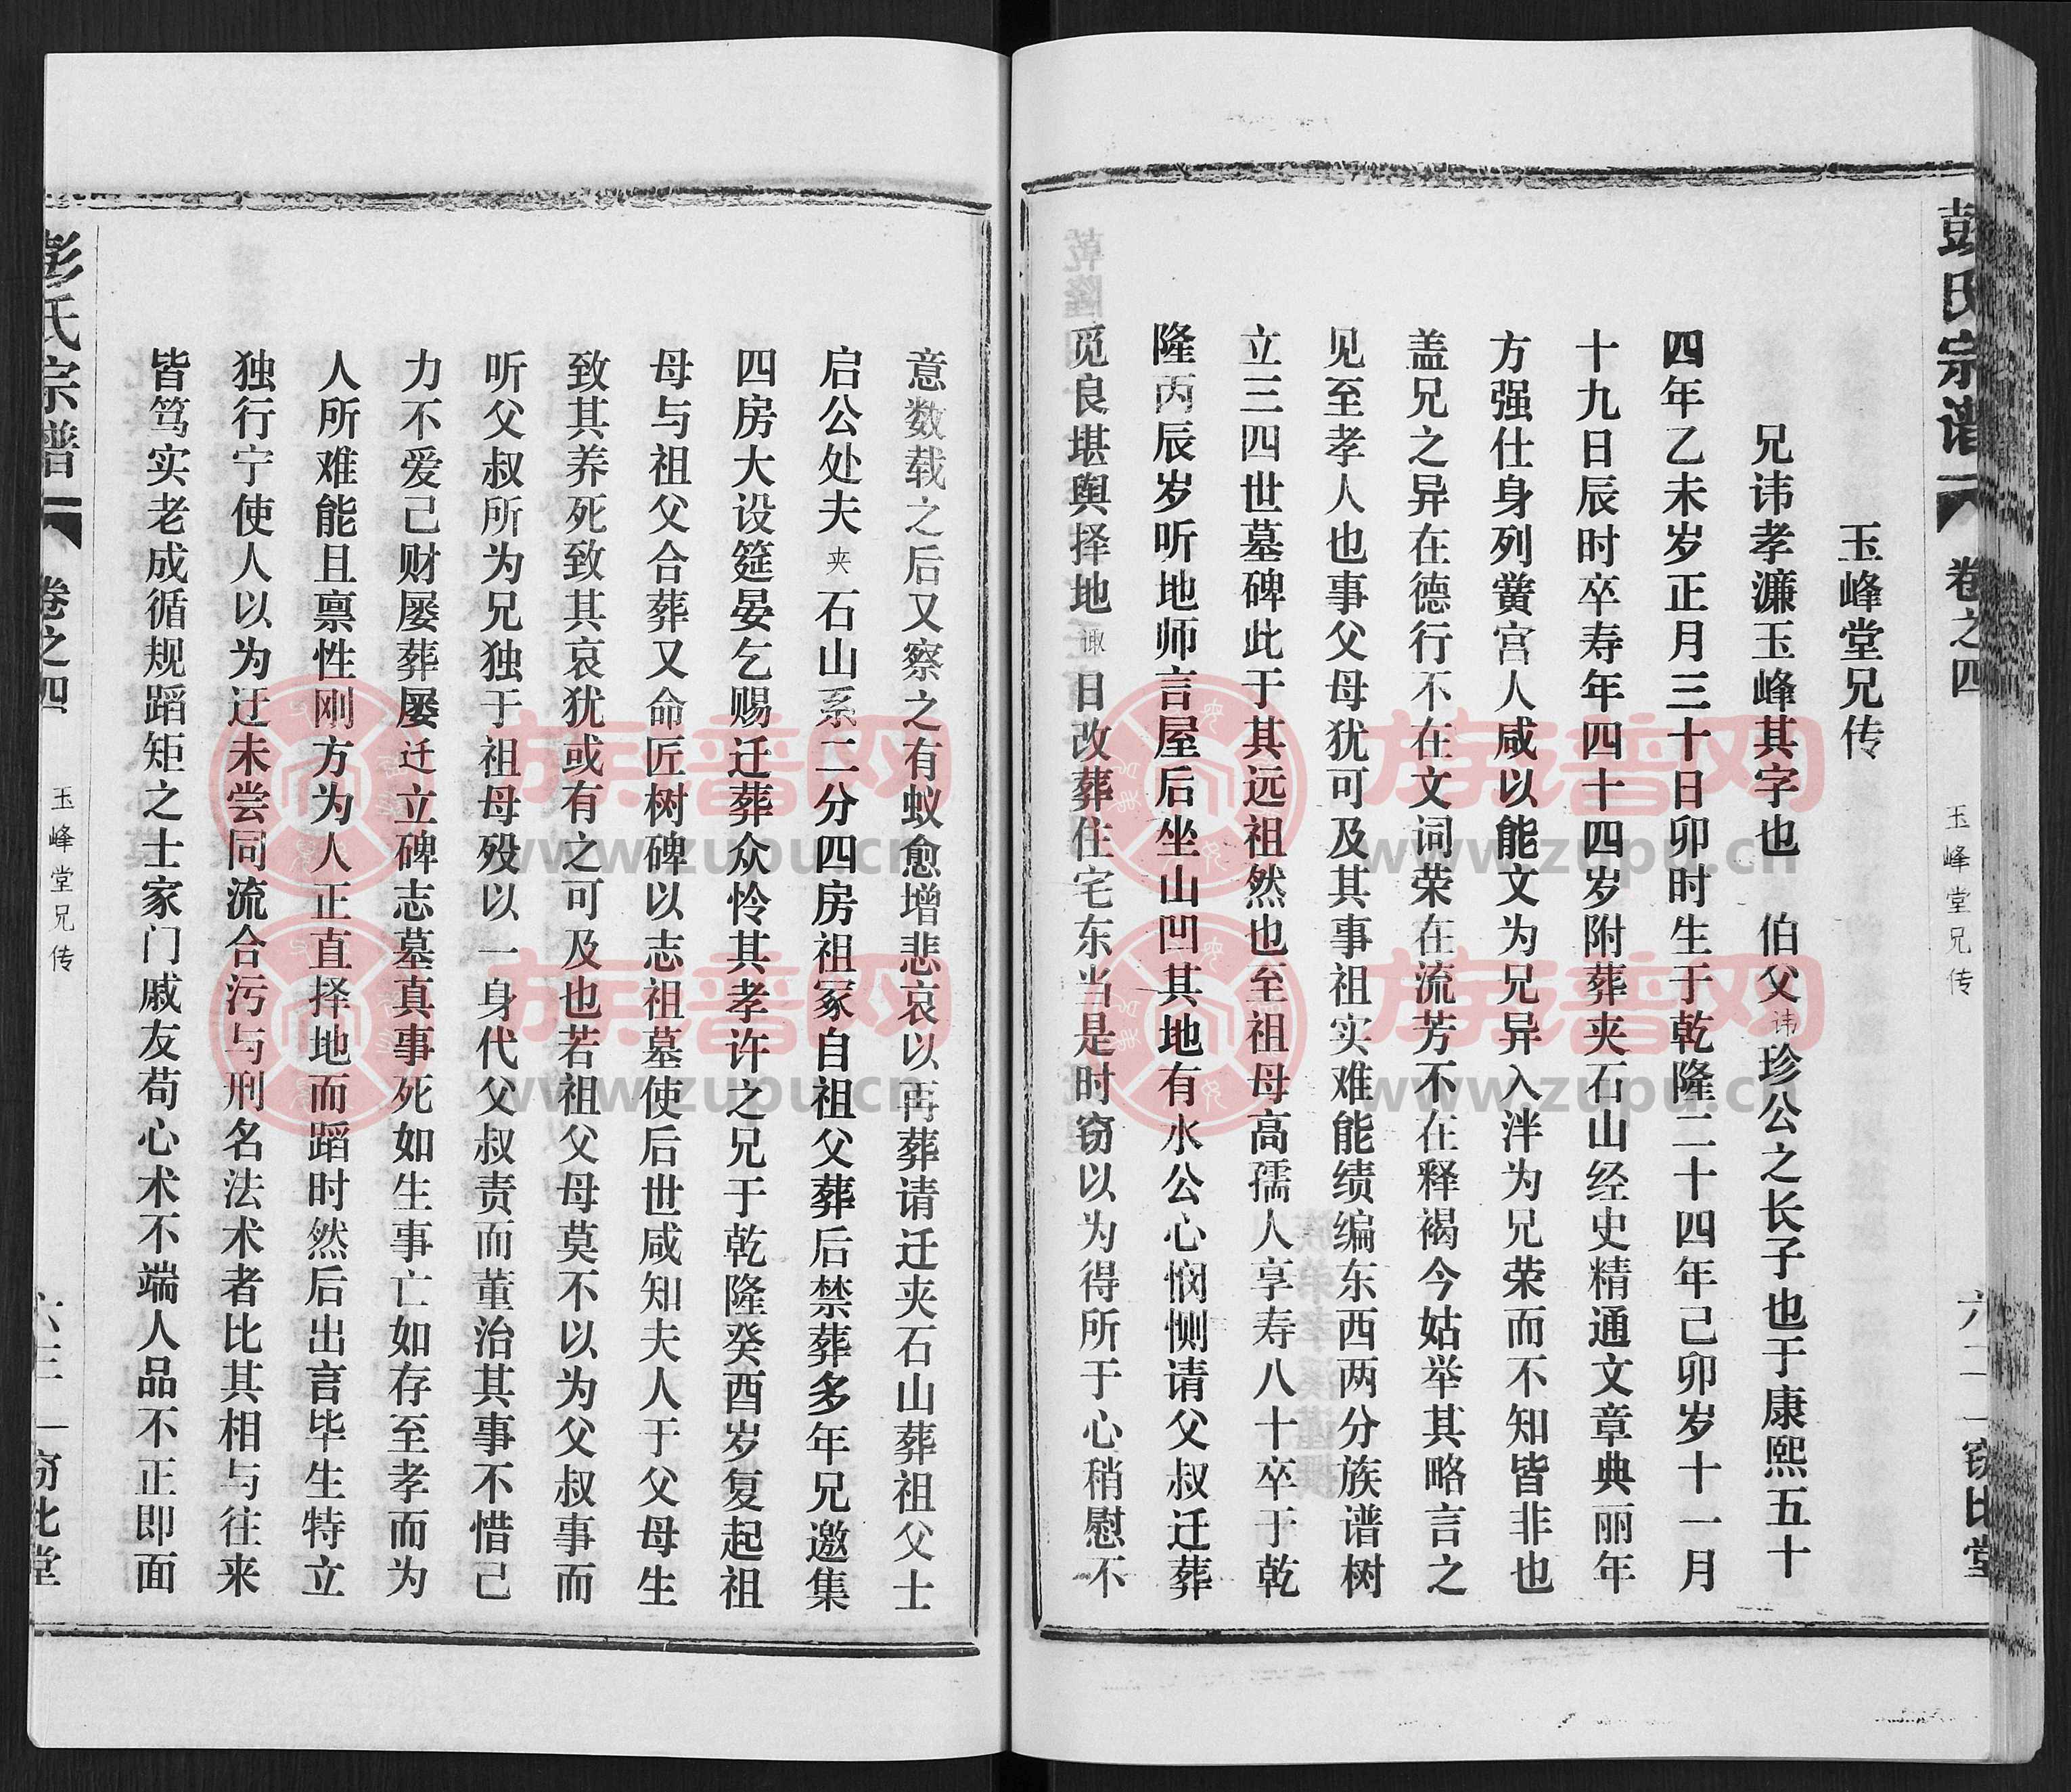 彭氏宗谱
卷之四
玉峰堂兄传
六二
窃比堂
玉峰堂兄传
兄讳孝濂玉峰其字也 伯父讳珍公之长子也于康熙五十
四年乙未岁正月三十日卯时生于乾隆二十四年己卯岁十一月
十九日辰时卒寿年四十四岁附葬夹石山经史精通文章典丽年
方强仕身列黉宫人咸以能文为兄异入泮为兄荣而不知皆非也
盖兄之异在德行不在文词荣在流芳不在释褐今姑举其略言之
见至孝人也事父母犹可及其事祖实难能绩编东西两分族谱树
立三四世墓碑此于其远祖然也至祖母高孺人享寿八十卒于乾
隆丙辰岁听地师言屋后坐山凹其地有水公心悯恻请父叔迁葬
觅良堪舆择地诹日改葬住宅东当是时窃以为得所于心稍慰不
意数载之后又察之有蚁愈增悲哀以再葬请迁夹石山葬祖父士
启公处夫夹石山系二分四房祖冢自祖父葬后禁葬多年兄邀集
四房大设筵晏乞赐迁葬众怜其孝许之兄于乾隆癸酉岁复起祖
母与祖父合葬又命匠树碑以志祖墓使后世咸知夫人于父母生
致其养死致其哀犹或有之可及也若祖父母莫不以为父叔事而
听父叔所为兄独于祖母殁以一身代父叔责而董治其事不惜己
力不爱己财屡葬屡迁立碑志墓真事死如生事亡如存至孝而为
人所难能且禀性刚方为人正直择地而蹈时然后出言毕生特立
独行宁使人以为迂未尝同流合污与刑名法术者比其相与往来
皆笃实老成循规蹈矩之士家门戚友苟心术不端人品不正即面
彭氏宗谱
卷之四
玉峰堂兄传
六三
窃比堂
族谱网
www.zupu.cn
族谱网
www.zupu.cn
族谱网
www.zupu.cn
族谱网
www.zupu.cn